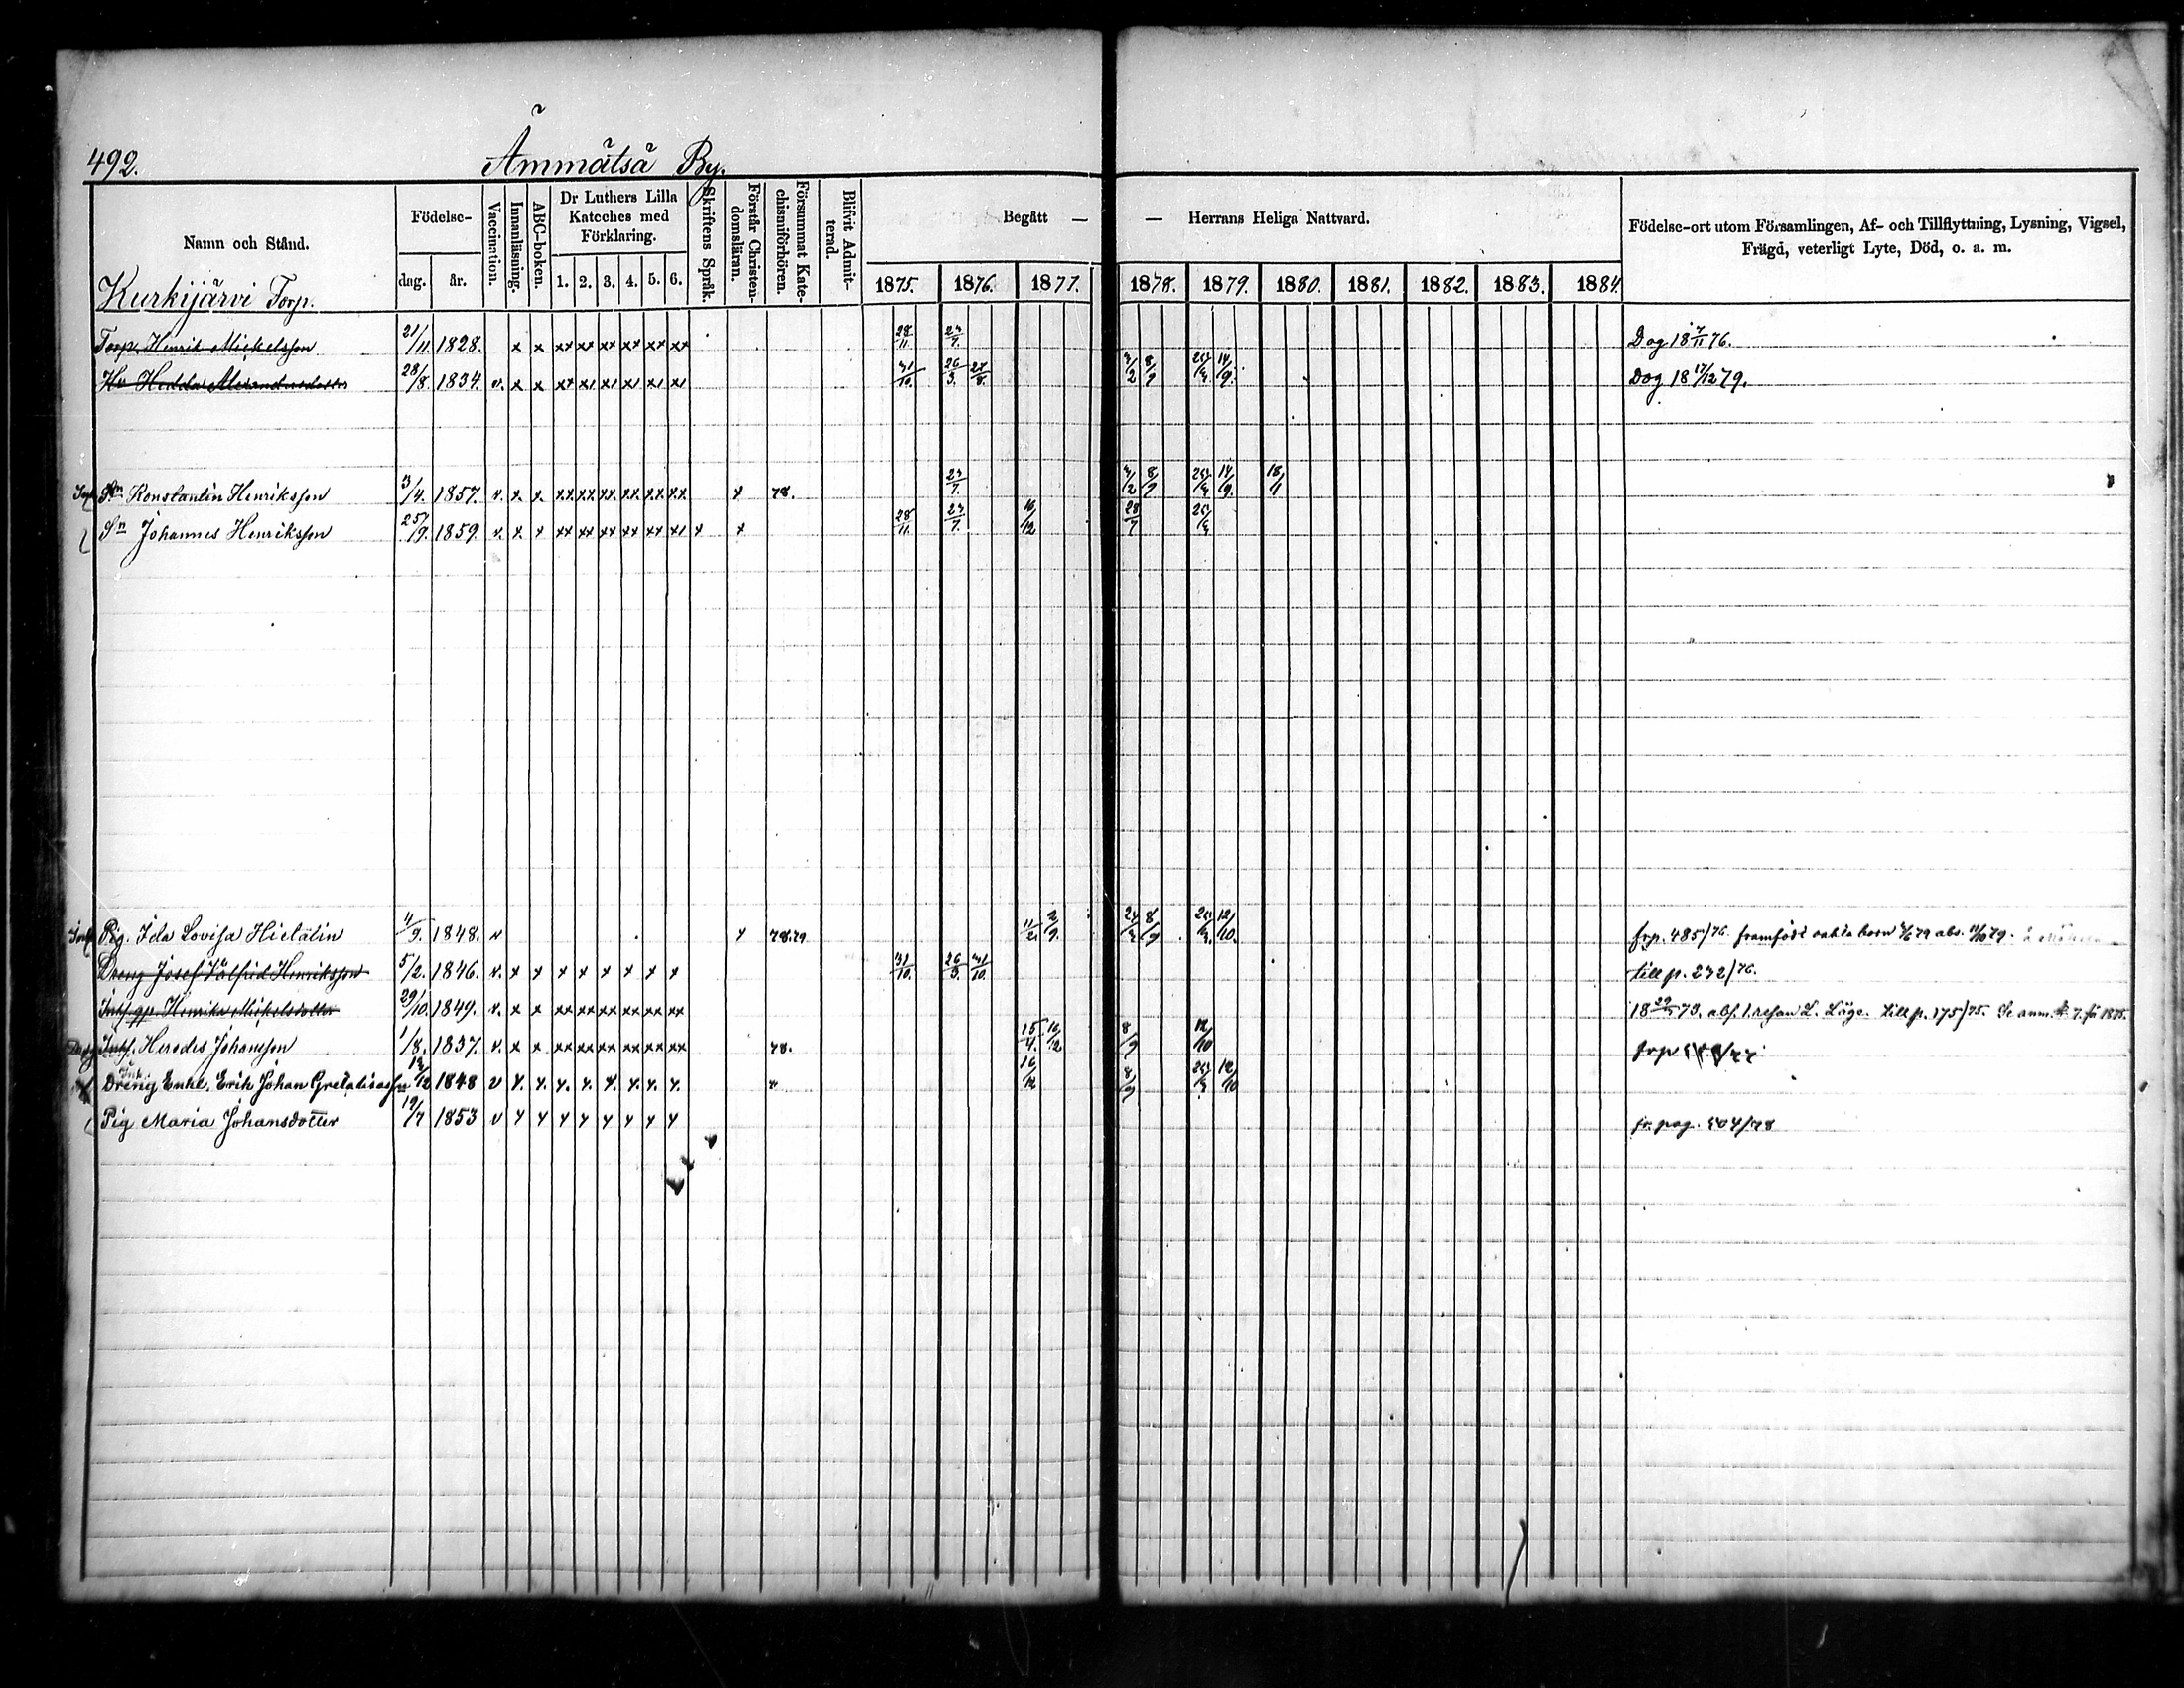 492.
Ämmätsä By.
Namn och Stånd.
Födelse-
dag. år.
Vaccination.
Innanläsning.
ABC-boken.
Dr Luthers Lilla
Kateches med
Förklaring.
1. 2. 3. 4. 5. 6.
Skriftens Språk.
Förstår Christen-
domsläran.
Försummat Kate-
chismiförhören.
Blifvit Admit-
terad.
Begått — — Herrans Heliga Nattvard.
1875. 1876. 1877. 1878. 1879. 1880. 1881. 1882. 1883. 1884.
Födelse-ort utom Församlingen, Af- och Tillflyttning, Lysning, Vigsel,
Frägd, veterligt Lyte, Död, o. a. m.
Kurkijärvi Torp.
Torp. Henrik Mickelsson 21/11. 1828. x x xx xx xx xx xx xx 28/11 Dog 18 7/11 76.
Hu Hedda Alexandersdotter 28/8. 1834. v. x x 31/10. 26/3. 8/9 14/9. Dog 18 17/12 79.
Sn Konstantin Henriksson 3/4. 1857. v. x x xx xx xx xx xx xx x 78. 8/9 14/9. 18/1
Sn Johannes Henriksson 25/9. 1859. v. x x xx xx xx xx xx x x 28/11. 16/12 28/7
Pig. Ida Lovisa Hietälin 11/9. 1848. v x 78.79 8/9 12/10. frp. 485/76.
Dreng Josef Wälfrid Henriksson 5/2. 1846. v. x x x x x x x x 31/10. 26/3. 31/10. till p. 232/76.
Henrika Mickelsdotter 29/10. 1849. v. x x xx xx xx xx xx xx till p. 175/75. Se anm. 7. för 1875.
Inh. Herodes Johansson 1/8. 1837. v. x x xx xx xx xx xx xx 78. 15/4. 16/12 8/9 12/10 frp
Dreng Enkl. Erik Johan Gretalisasson 1848 v x. x. x. x. x. x. x. x. 16/12 8/9 12/10
Pig Maria Johansdotter 19/7 1853 v x x x x x x x x fr. pag. 504/78